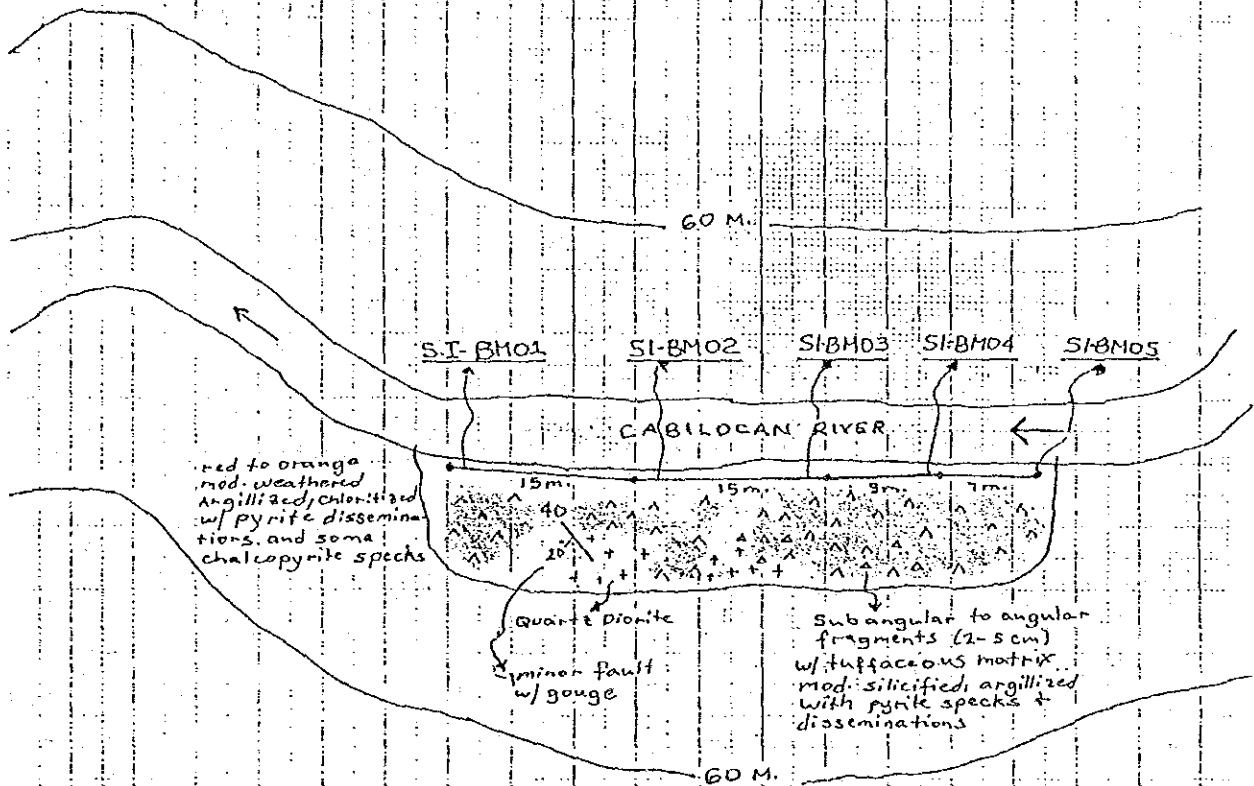 60 M.
S.I-BM01
SI-BM02
SI-BM03
SI-BM04
SI-BM05
CABILOCAN RIVER
15 m.
15 m.
9 m.
7 m.
red to orange
mod. weathered
Argillized, chloritized
w/ pyrite dissemina-
tions, and some
chalcopyrite specks
40
20
Quartz Diorite
minor fault
w/ gouge
Subangular to angular
fragments (2-5 cm)
w/ tuffaceous matrix
mod. silicified, argillized
with pyrite specks +
disseminations
60 M.